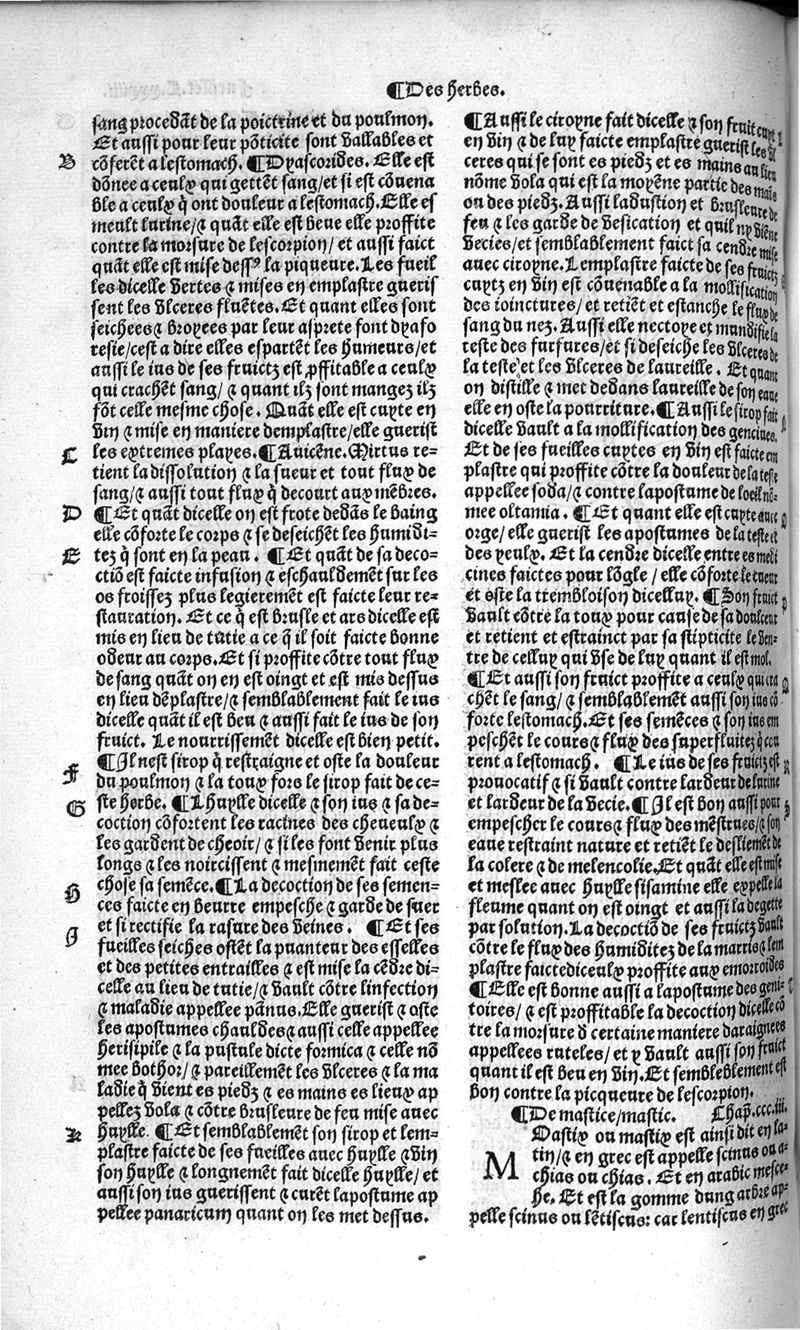 ¶Des herbes.
sang procedãt de la poictrine et du poulmon.
Et aussi pour leur põticite sont vallables et
B cõferẽt a lestomach. ¶Dyascorides. Elle est
dõnee a ceulx qui gettẽt sang/et si est cõuena
ble a ceulx q̃ ont douleur a lestomach. Elle es
meult lurine/⁊ quãt elle est beue elle proffite
contre la morsure de lescorpion/ et aussi faict
quãt elle est mise dessꝰ la piqueure. Les fueil
les dicelle vertes ⁊ mises en emplastre gueris
sent les vlceres fluẽtes. Et quant elles sont
seichees ⁊ broyees par leur asprete font dyafo
resie/cest a dire elles espartẽt les humeurs/et
aussi le ius de ses fruictz est ꝓffitable a ceulx
qui crachẽt sang/ ⁊ quant ilz sont mangez ilz
fõt celle mesme chose. Quãt elle est cuyte en
vin ⁊ mise en maniere demplastre/elle guerist
C les extremes playes. ¶Auicẽne. Mirtus re-
tient la dissolution ⁊ la sueur et tout flux de
sang/⁊ aussi tout flux q̃ decourt aux mẽbres.
D ¶Et quãt dicelle on est frote dedãs le baing
elle cõforte le corps ⁊ se deseichẽt les humidi-
E tez q̃ sont en la peau. ¶Et quãt de sa deco-
ctiõ est faicte infusion ⁊ eschauldemẽt sur les
os froissez plus legierement est faicte leur re-
stauration. Et ce q̃ est brusle et ars dicelle est
mis en lieu de tutie a ce q̃ il soit faicte bonne
odeur au corps. Et si proffite cõtre tout flux
de sang quãt on en est oingt et est mis dessus
en lieu dẽplastre/⁊ semblablement fait le ius
dicelle quãt il est beu ⁊ aussi fait le ius de son
fruict. Le nourrissemẽt dicelle est bien petit.
F ¶Il nest sirop q̃ restraigne et oste la douleur
du poulmon ⁊ la toux fors le sirop fait de ce-
G ste herbe. ¶Lhuylle dicelle ⁊ son ius ⁊ sa de-
coction cõfortent les racines des cheueulx ⁊
les gardent de cheoir/ ⁊ si les font venir plus
longs ⁊ les noircissent ⁊ mesmemẽt fait ceste
H chose sa semẽce. ¶La decoction de ses semen-
ces faicte en beurre empesche ⁊ garde de suer
J et si rectifie la rasure des veines. ¶Et ses
fueilles seiches ostẽt la puanteur des esselles
et des petites entrailles ⁊ est mise la cẽdre di-
celle au lieu de tutie/⁊ vault cõtre linfection
⁊ maladie appellee pãnus. Elle guerist ⁊ oste
les apostumes chauldes ⁊ aussi celle appellee
herisipile ⁊ la pustule dicte formica ⁊ celle nõ
mee bothor/ ⁊ pareillemẽt les vlceres ⁊ la ma
ladie q̃ vient es piedz ⁊ es mains es lieux ap
pellez vola ⁊ cõtre brusleure de feu mise auec
K huylle. ¶Et semblablemẽt son sirop et lem-
plastre faicte de ses fueilles auec huylle ⁊ vin
son huylle ⁊ longnement fait dicelle huylle/ et
aussi son ius guerissent ⁊ curẽt lapostume ap
pellee panaricum quant on les met dessus.
¶Aussi le ciroyne fait dicelle ⁊ son fruit cuyt
en vin ⁊ de luy faicte emplastre guerist les vl
ceres qui se sont es piedz et es mains au lieu
nõme vola qui est la moyẽne partie des mais
ou des piedz. Aussi ladustion et brusleure de
feu ⁊ les garde de vesication et quil ny viẽne
vecies/et semblablement faict sa cendre mise
auec ciroyne. Lemplastre faicte de ses fruictz
cuytz en vin est cõuenable a la mollification
des ioinctures/ et retiẽt et estanche le flux de
sang du nez. Aussi elle nectoye et mundifie la
teste des furfures/et si deseiche les vlceres de
la teste et les vlceres de laureille. Et quant
on distille ⁊ met dedans laureille de son eaue
elle en oste la pourriture. ¶Aussi le sirop fait
dicelle vault a la mollification des genciues.
Et de ses fueilles cuytes en vin est faicte em
plastre qui proffite cõtre la douleur de la teste
appellee soda/⁊ contre lapostume de loeil nõ-
mee oltamia. ¶Et quant elle est cuyte auec
orge/elle guerist les apostumes de la teste et
des yeulx. Et la cendre dicelle entre es medi
cines faictes pour lõgle / elle cõforte le cueur
et oste la trembloison dicelluy. ¶Son fruict
vault cõtre la toux pour cause de sa doulceur
et retient et estrainct par sa stipticite le ven-
tre de celluy qui vse de luy quant il est mol.
¶Et aussi son fruict proffite a ceulx qui cra
chẽt le sang/ ⁊ semblablemẽt aussi son ius cõ
forte lestomach. Et ses semẽces ⁊ son ius em
peschẽt le cours ⁊ flux des superfluitez q̃ cou
rent a lestomach. ¶Le ius de ses fruictz est
prouocatif ⁊ si vault contre lardeur de lurine
et lardeur de la vecie. ¶Il est bon aussi pour
empescher le cours ⁊ flux des mẽstrues/⁊ son
eaue restraint nature et retiẽt le desliemẽt de
la colere ⁊ de melencolie. Et quãt elle est mise
et meslee auec huylle sisamine elle expelle la
fleume quant on est oingt et aussi la degette
par solution. La decoctiõ de ses fruictz vault
cõtre le flux des humiditez de la marris ⁊ lem
plastre faicte diceulx proffite aux emorroides
¶Elle est bonne aussi a lapostume des geni-
toires/ ⁊ est proffitable la decoction dicelle cõ
tre la morsure d certaine maniere daraignees
appellees ruteles/ et y vault aussi son fruict
quant il est beu en vin. Et sembleblement est
bon contre la picqueure de lescorpion.
¶De mastice/mastic. Chap. ccc.iii.
Mastix ou mastix est ainsi dit en la-
tin/⁊ en grec est appelle scinus ou a-
chias ou chias. Et en arabic mesce-
he. Et est la gomme dung arbre ap-
pelle scinus ou lẽtiscus: car lentiscus en grec